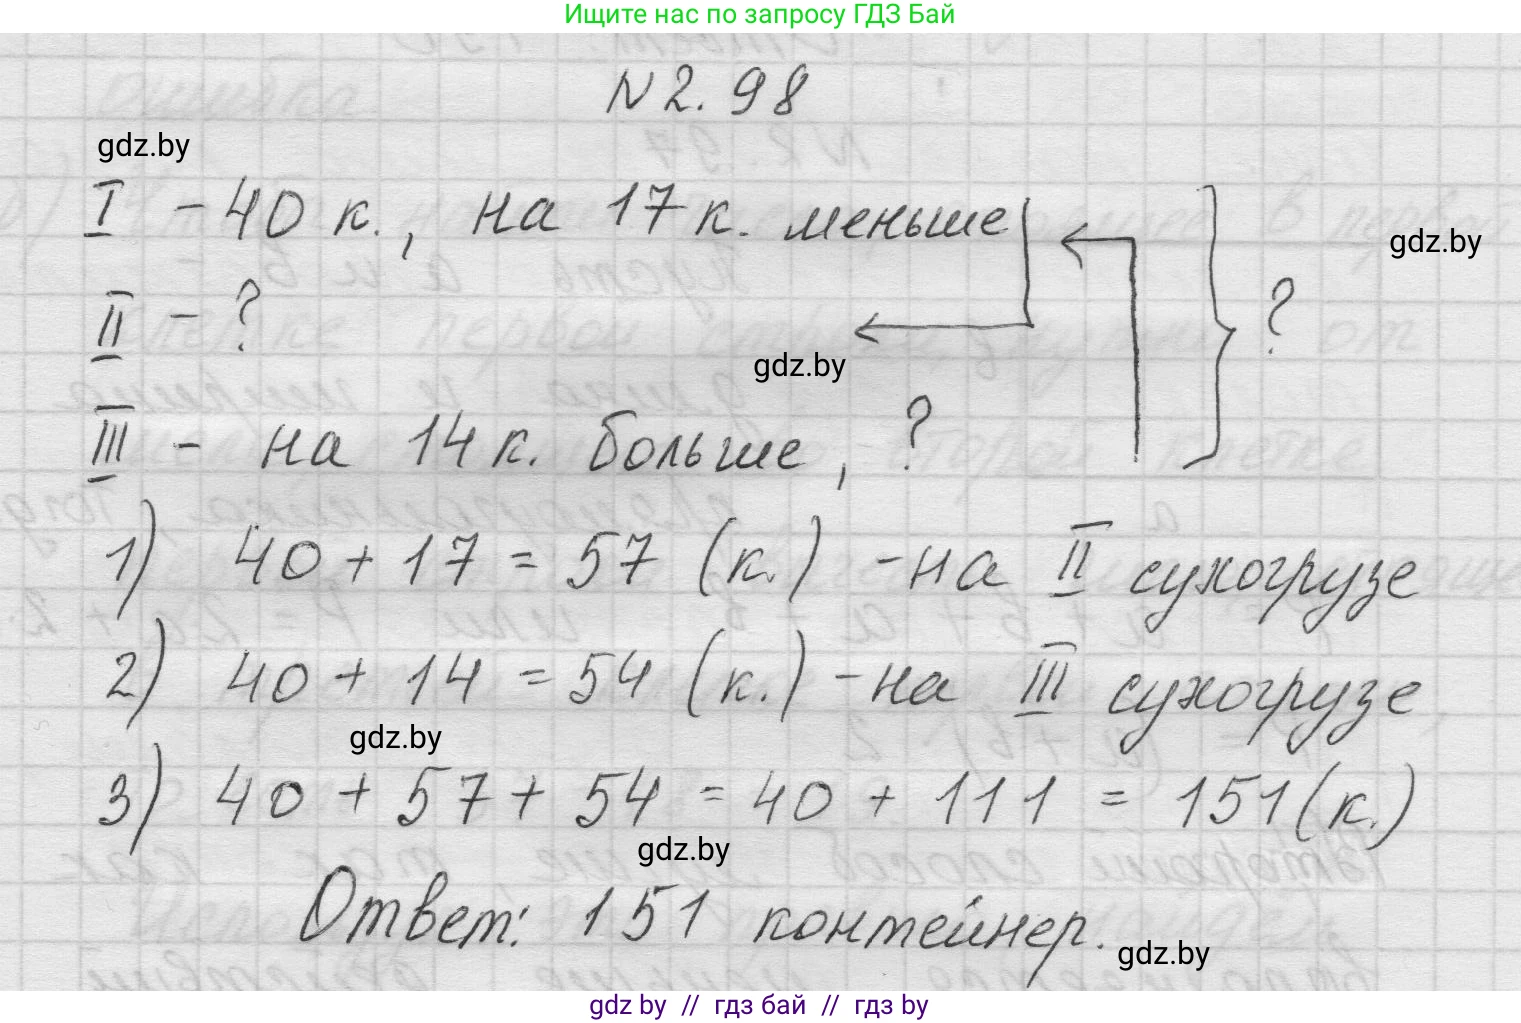 Ищите нас по запросу ГДЗ Бай
N 2.98
gdz.by
I - 40 к., на 17 к. меньше
gdz.by
II - ?
?
gdz.by
III - на 14 к. больше, ?
1) 40 + 17 = 57 (к.) - на II сухогрузе
2) 40 + 14 = 54 (к.) - на III сухогрузе
gdz.by
3) 40 + 57 + 54 = 40 + 111 = 151 (к.)
gdz.by
Ответ: 151 контейнер.
gdz.by
gdz by // гдз бай // гдз by